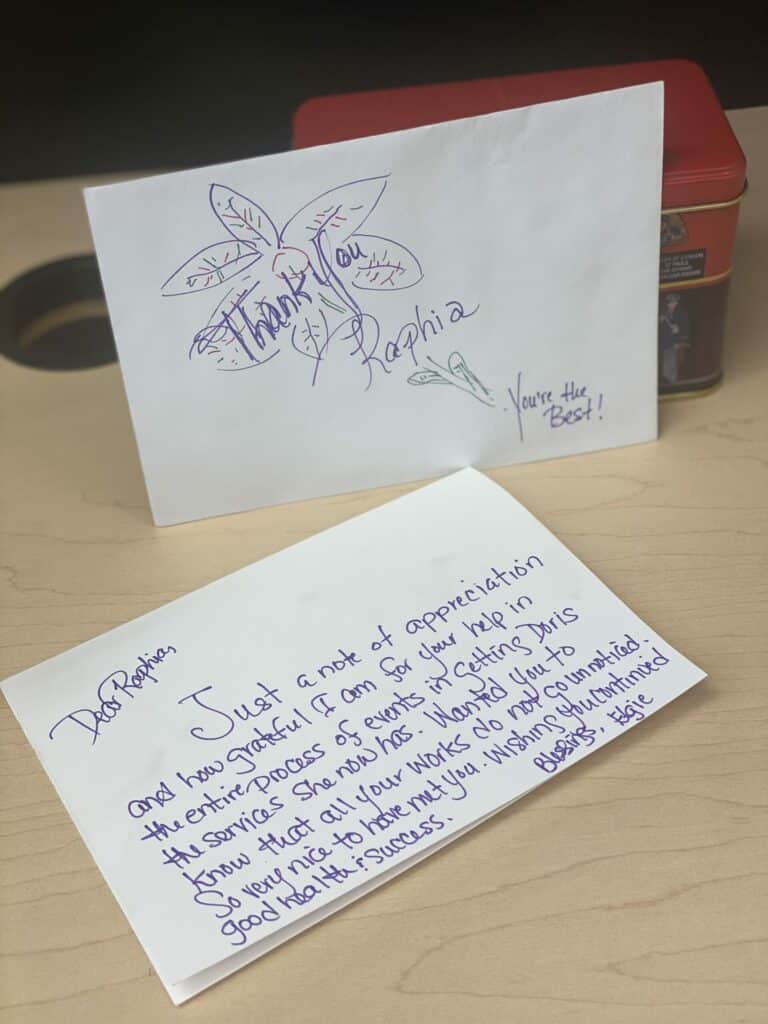 Thank You
Raphia
You're the
Best!
Dear Raphia,
Just a note of appreciation
and how grateful I am for your help in
the entire process of events in getting Doris
the services she now has. Wanted you to
know that all your works do not go unnoticed.
So very nice to have met you. Wishing you continued
good health & success.
Blessings, Edgie